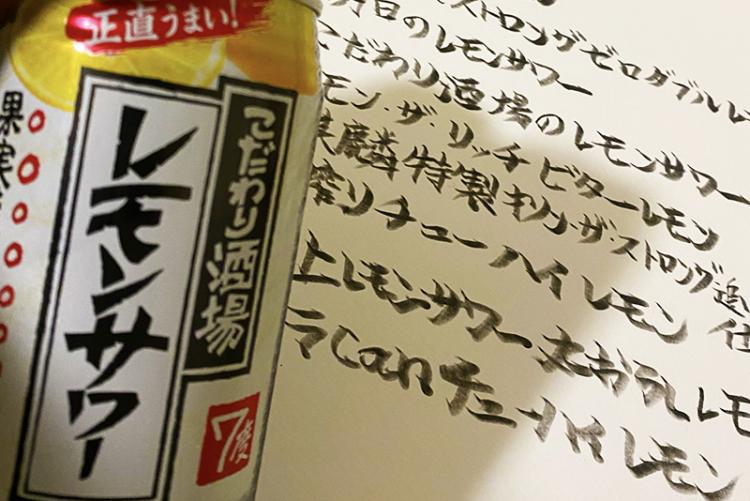 正直うまい!
こだわり酒場
レモンサワー
7度
果実
ストロングゼロダブルレ
日のレモンサワー
こだわり酒場のレモンサワー
モン・ザ・リッチ ビターレモン
麒麟特製 キリン・ザ・ストロング 追
搾りチューハイ レモン 仕
上レモンサワー 太おろしレモ
ラCanチューハイ レモン